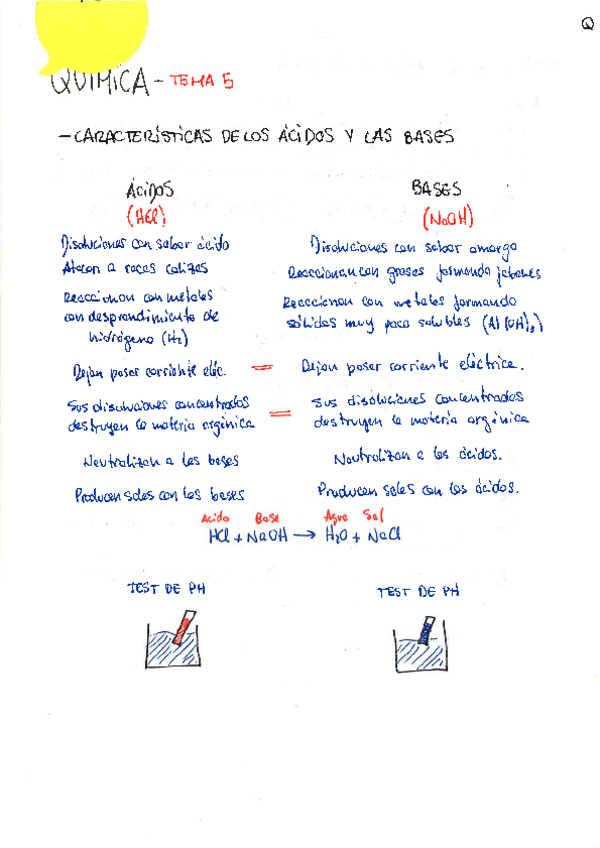 Q
QUÍMICA - TEMA 5
- CARACTERÍSTICAS DE LOS ÁCIDOS Y LAS BASES
ÁCIDOS
(HCl)
Disoluciones con sabor ácido
Atacan a rocas calizas
Reaccionan con metales
con desprendimiento de
hidrógeno (H₂)
Dejan pasar corriente eléc.
Sus disoluciones concentradas
destruyen la materia orgánica
Neutralizan a las bases
Producen sales con las bases
BASES
(NaOH)
Disoluciones con sabor amargo
Reaccionan con grasas formando jabones
Reaccionan con metales formando
sólidos muy poco solubles (Al(OH)₃)
= Dejan pasar corriente eléctrica.
= Sus disoluciones concentradas
destruyen la materia orgánica
Neutralizan a los ácidos.
Producen sales con los ácidos.
Acido Base Agua Sal
HCl + NaOH → H₂O + NaCl
TEST DE PH
TEST DE PH